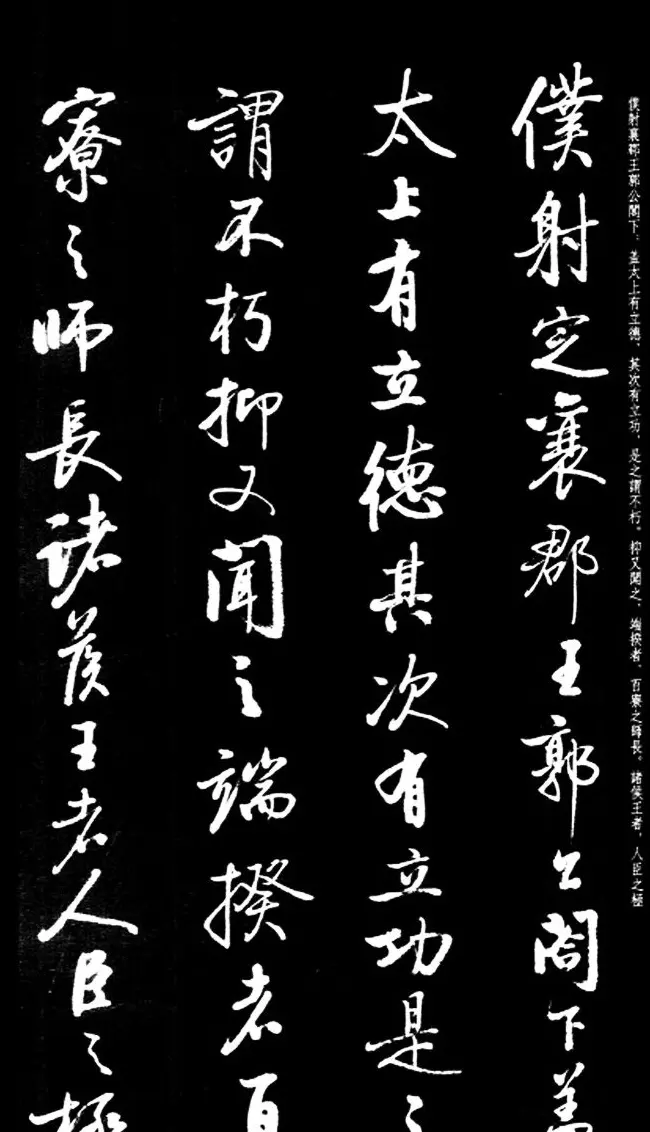 僕射襄郡王郭公閣下：盖太上有立德，其次有立功，是之謂不朽。抑又聞之，端揆者，百寮之師長。諸侯王者，人臣之極
僕射定襄郡王郭公閤下盖
太上有立德其次有立功是之
謂不朽抑又聞之端揆者百
寮之師長諸侯王者人臣之極